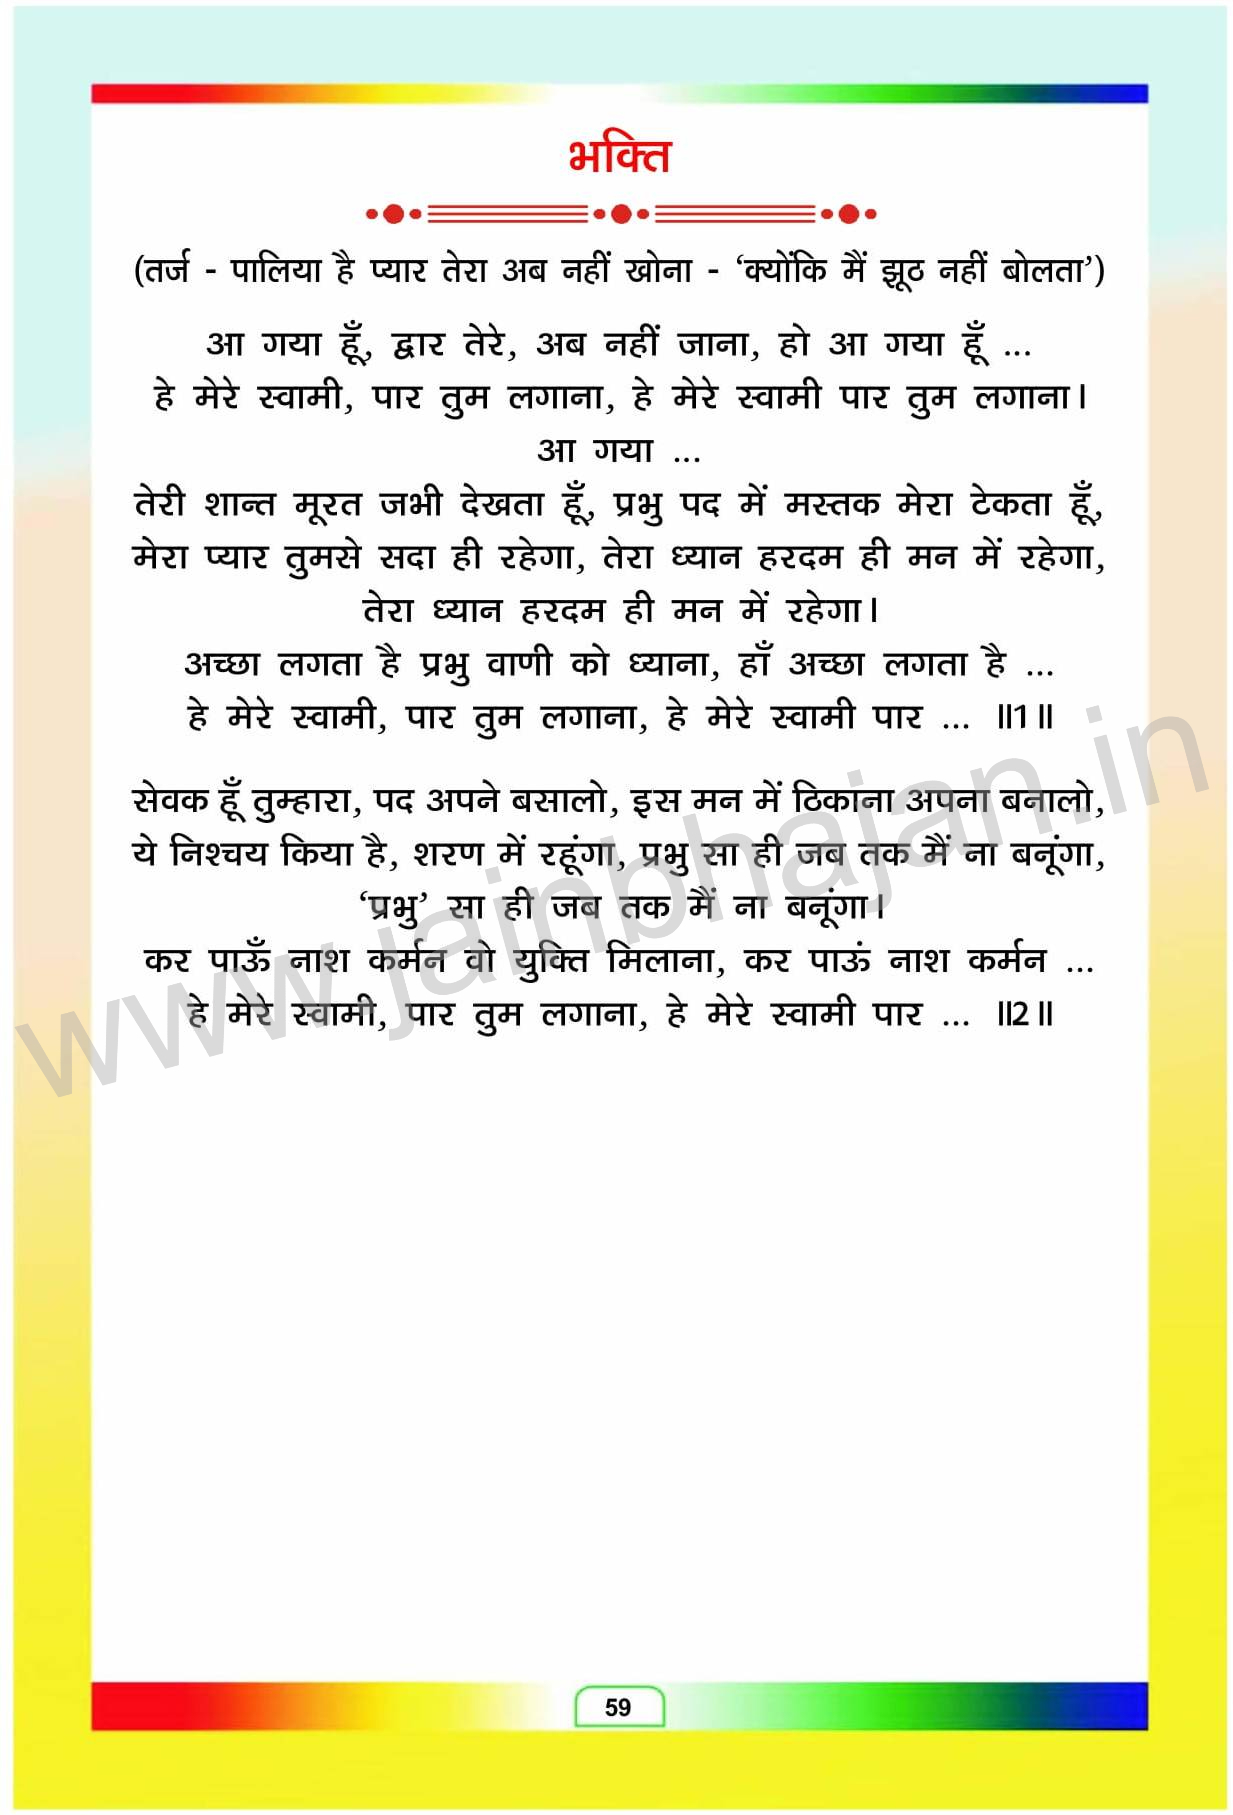 भक्ति
(तर्ज - पालिया है प्यार तेरा अब नहीं खोना - ‘क्योंकि मैं झूठ नहीं बोलता’)
आ गया हूँ, द्वार तेरे, अब नहीं जाना, हो आ गया हूँ ...
हे मेरे स्वामी, पार तुम लगाना, हे मेरे स्वामी पार तुम लगाना।
आ गया ...
तेरी शान्त मूरत जभी देखता हूँ, प्रभु पद में मस्तक मेरा टेकता हूँ,
मेरा प्यार तुमसे सदा ही रहेगा, तेरा ध्यान हरदम ही मन में रहेगा,
तेरा ध्यान हरदम ही मन में रहेगा।
अच्छा लगता है प्रभु वाणी को ध्याना, हाँ अच्छा लगता है ...
हे मेरे स्वामी, पार तुम लगाना, हे मेरे स्वामी पार ... ॥1॥
सेवक हूँ तुम्हारा, पद अपने बसालो, इस मन में ठिकाना अपना बनालो,
ये निश्चय किया है, शरण में रहूंगा, प्रभु सा ही जब तक मैं ना बनूंगा,
‘प्रभु’ सा ही जब तक मैं ना बनूंगा।
कर पाऊँ नाश कर्मन वो युक्ति मिलाना, कर पाऊं नाश कर्मन ...
हे मेरे स्वामी, पार तुम लगाना, हे मेरे स्वामी पार ... ॥2॥
www.jainbhajan.in
59